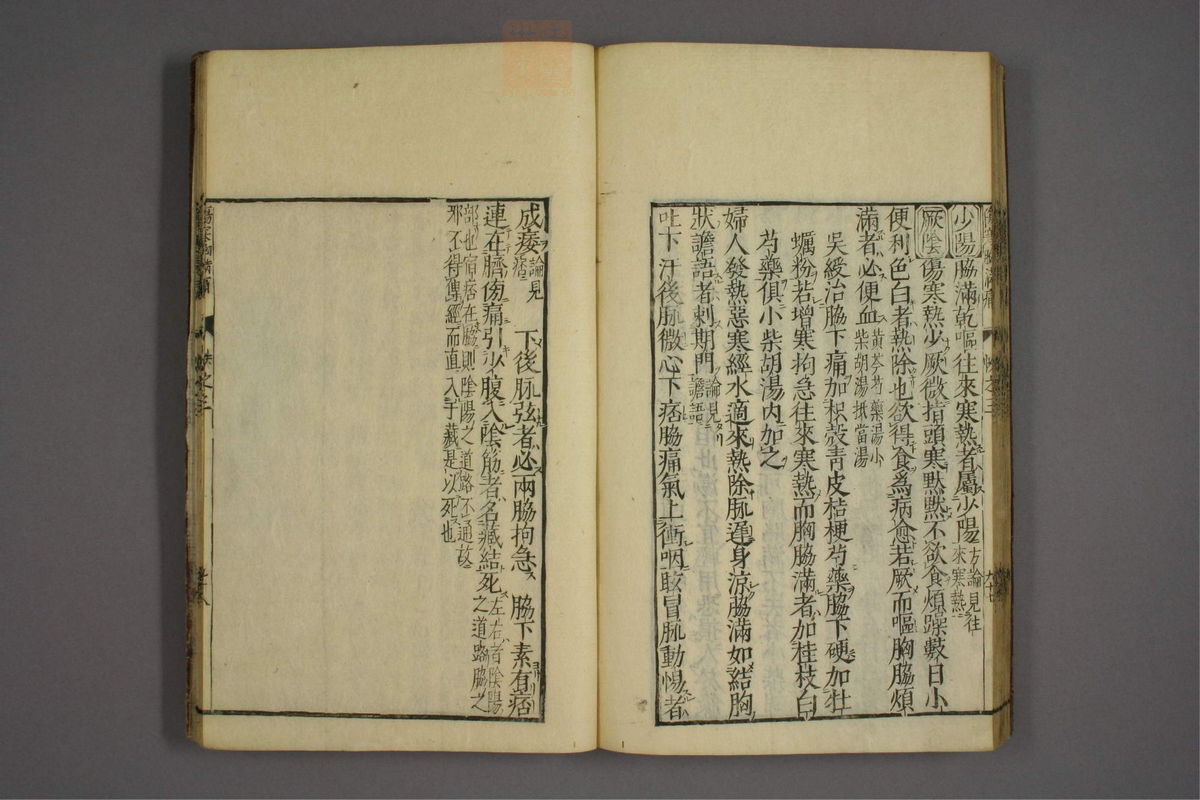 少陽脇滿乾嘔往來寒熱者屬少陽方論見往來寒熱
厥陰傷寒熱少厥微指頭寒默默不欲食煩躁數日小
便利色白者熱除也欲得食爲病愈若厥而嘔胸脇煩
滿者必便血黃芩芍藥湯小柴胡湯抵當湯
吳綬治脇下痛加枳殼青皮桔梗芍藥脇下硬加牡
蠣粉若增寒拘急往來寒熱而胸脇滿者加桂枝白
芍藥俱小柴胡湯内加之
婦人發熱惡寒經水適來熱除脉遲身涼脇滿如結胸
狀譫語者刺期門論見譫語
吐下汗後脉微心下痞脇痛氣上衝咽眩冒脉動惕者
成痿論見痞
下後脉弦者必兩脇拘急
脇下素有痞
連在臍傍痛引少腹入陰筋者名藏結死左右者陰陽之道路脇之
部也宿痞在脇則陰陽之道路不通故
邪不得傳經而直入于藏是以死也